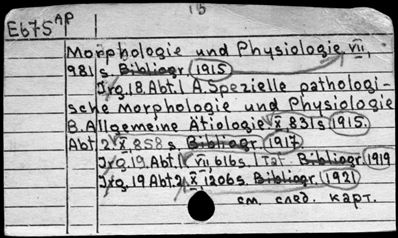 15
E675 AP
Morphologie und Physiologie VII,
981 s. Bibliogr. 1915
Jrg. 18. Abt. 1 A. Spezielle pathologi-
sche morphologie und Physiologie
B. Allgemeine Ätiologie X 831 s 1915.
Abt 2 X, 858 s. Bibliogr. 1917
Jrg. 19. Abt. 1 VII, 616 s. 1 Taf. Bibliogr. 1919
Jrg. 19 Abt. 2 X, 1206 s. Bibliogr. 1921
см. след. карт.